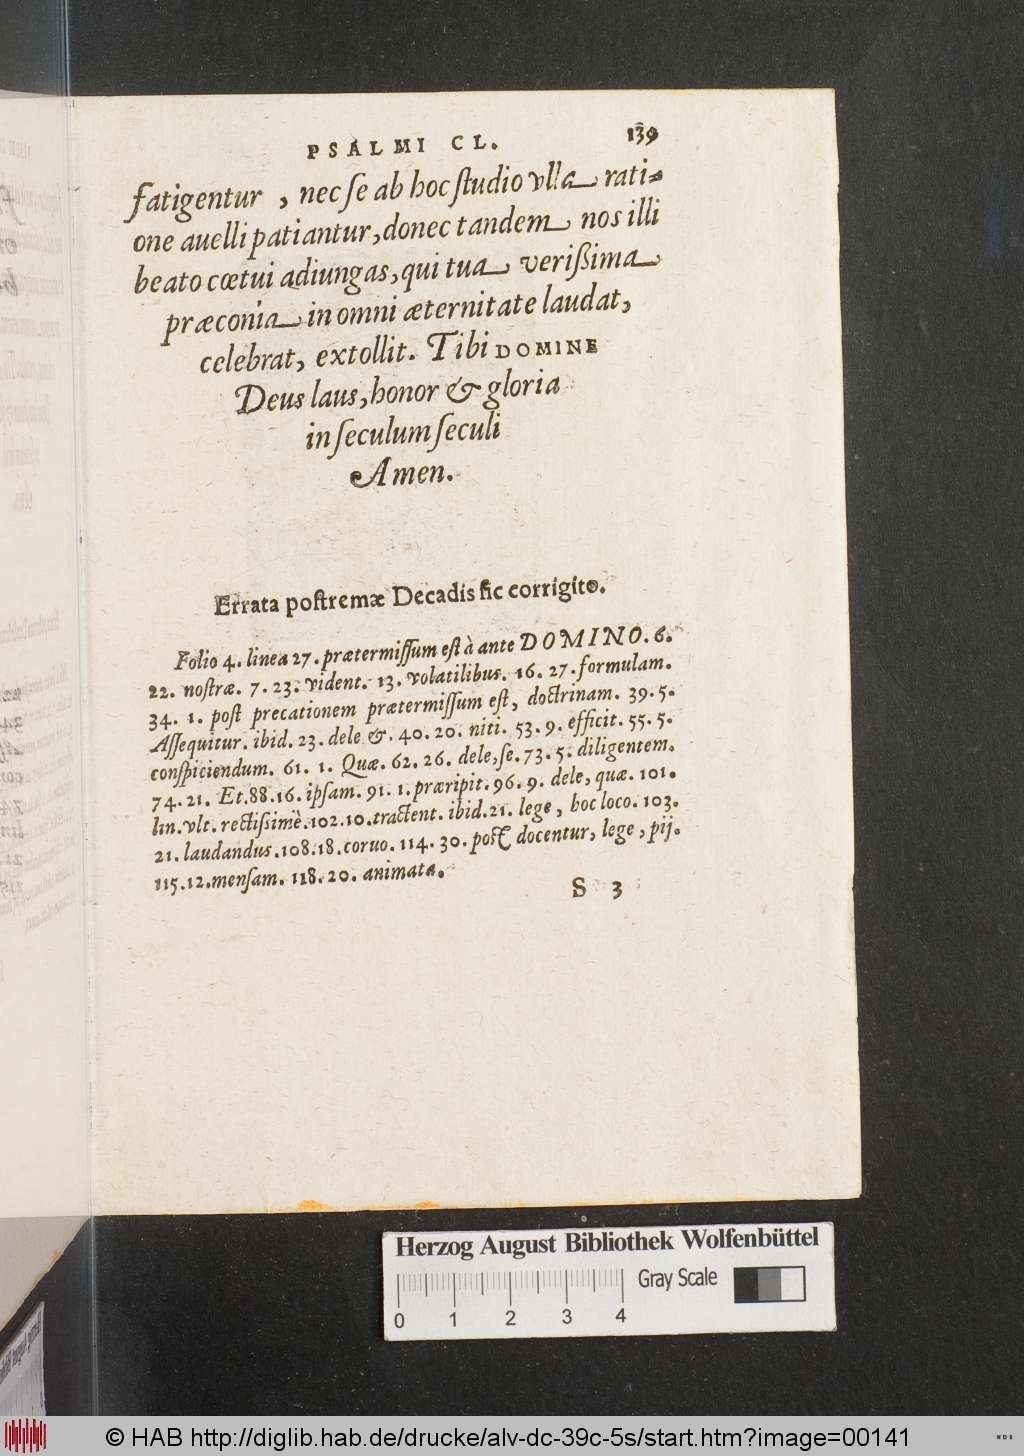 PSALMI CL. 139
fatigentur, nec se ab hoc studio vlla rati-
one auelli patiantur, donec tandem nos illi
beato cœtui adiungas, qui tua verißima
præconia in omni æternitate laudat,
celebrat, extollit. Tibi DOMINE
Deus laus, honor & gloria
in seculum seculi
Amen.
Errata postremæ Decadis sic corrigito.
Folio 4. linea 27. prætermissum est à ante DOMINO. 6.
22. nostræ. 7. 23. vident. 13. volatilibus. 16. 27. formulam.
34. 1. post precationem prætermissum est, doctrinam. 39. 5.
Assequitur. ibid. 23. dele &. 40. 20. niti. 53. 9. efficit. 55. 5.
conspiciendum. 61. 1. Quæ. 62. 26. dele, se. 73. 5. diligentem.
74. 21. Et. 88. 16. ipsam. 91. 1. præripit. 96. 9. dele, quæ. 101.
lin. vlt. rectißimè. 102. 10. tractent. ibid. 21. lege, hoc loco. 103.
21. laudandus. 108. 18. coruo. 114. 30. post docentur, lege, pij.
115. 12. mensam. 118. 20. animata.
S 3
Herzog August Bibliothek Wolfenbüttel
Gray Scale
0 1 2 3 4
© HAB http://diglib.hab.de/drucke/alv-dc-39c-5s/start.htm?image=00141